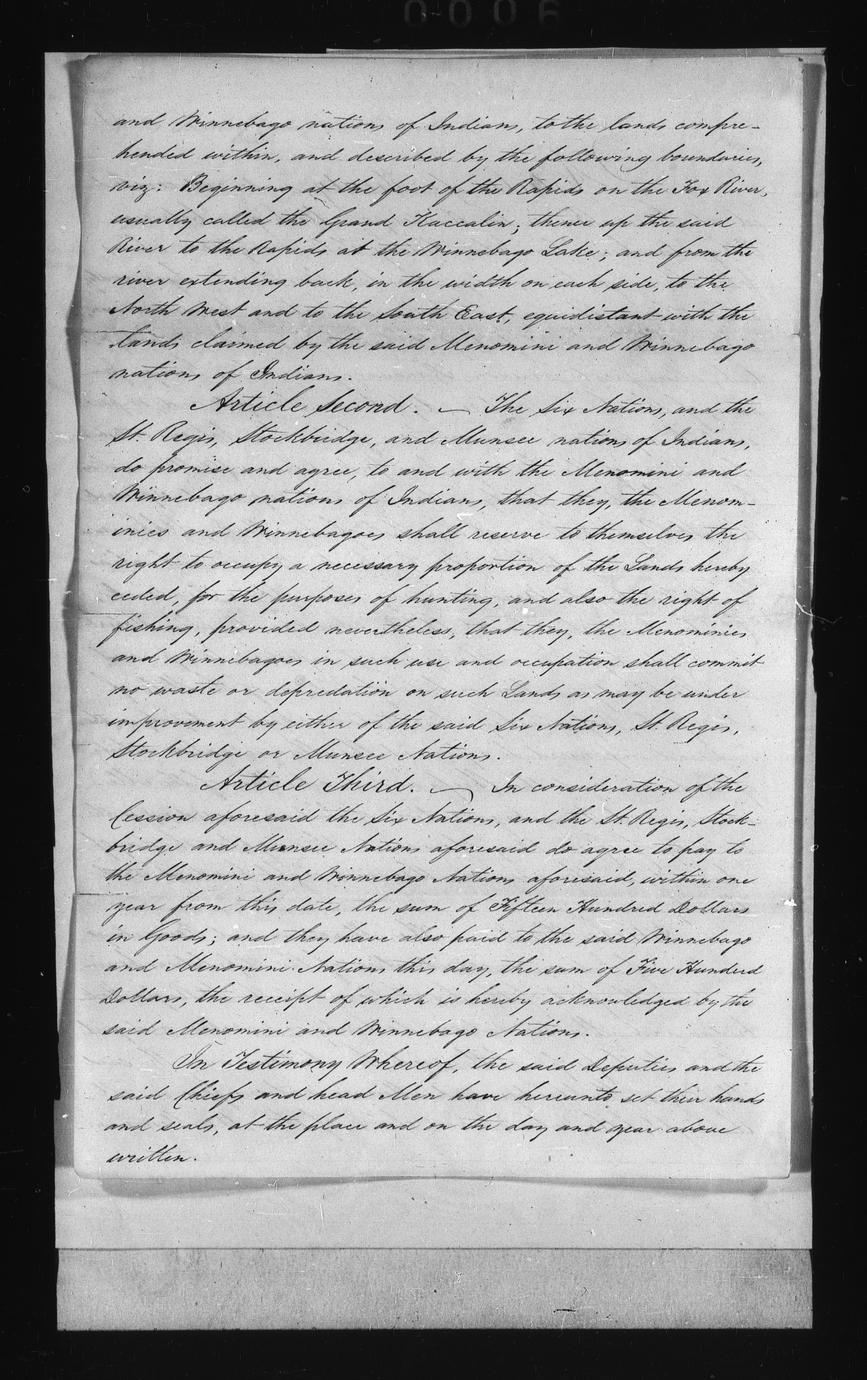 0006
and Winnebago nations of Indians, to the lands compre-
hended within, and described by the following boundaries,
viz: Beginning at the foot of the Rapids on the Fox River,
usually called the Grand Kaccalin; thence up the said
River to the Rapids at the Winnebago Lake; and from the
river extending back, in the width on each side, to the
North West and to the South East, equidistant with the
lands claimed by the said Menomini and Winnebago
nations of Indians.
Article Second. — The Six Nations, and the
St. Regis, Stockbridge, and Munsee nations of Indians,
do promise and agree, to and with the Menomini and
Winnebago nations of Indians, that they, the Menom-
inies and Winnebagoes shall reserve to themselves the
right to occupy a necessary proportion of the Lands hereby
ceded, for the purposes of hunting, and also the right of
fishing, provided nevertheless, that they, the Menominies
and Winnebagoes in such use and occupation shall commit
no waste or depredation on such Lands as may be under
improvement by either of the said Six Nations, St. Regis,
Stockbridge or Munsee Nations.
Article Third. — In consideration of the
Cession aforesaid the Six Nations, and the St. Regis, Stock-
bridge and Munsee Nations aforesaid do agree to pay to
the Menomini and Winnebago Nations aforesaid, within one
year from this date, the sum of Fifteen Hundred Dollars
in Goods; and they have also paid to the said Winnebago
and Menomini Nations this day, the sum of Five Hundred
Dollars, the receipt of which is hereby acknowledged by the
said Menomini and Winnebago Nations.
In Testimony Whereof, the said Deputies and the
said Chiefs and head Men have hereunto set their hands
and seals, at the place and on the day and year above
written.